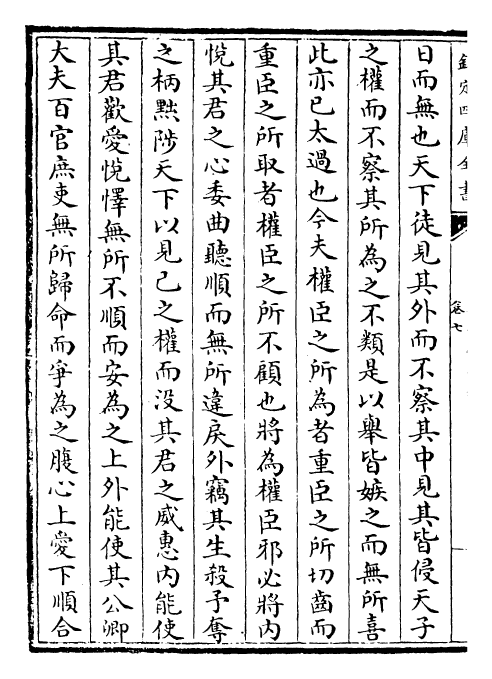 欽定四庫全書
卷七
日而無也天下徒見其外而不察其中見其皆侵天子
之權而不察其所為之不類是以舉皆嫉之而無所喜
此亦已太過也今夫權臣之所為者重臣之所切齒而
重臣之所取者權臣之所不顧也將為權臣邪必將內
悅其君之心委曲聽順而無所違戾外竊其生殺予奪
之柄黜陟天下以見己之權而没其君之威惠內能使
其君歡愛悅懌無所不順而安為之上外能使其公卿
大夫百官庶吏無所歸命而爭為之腹心上愛下順合